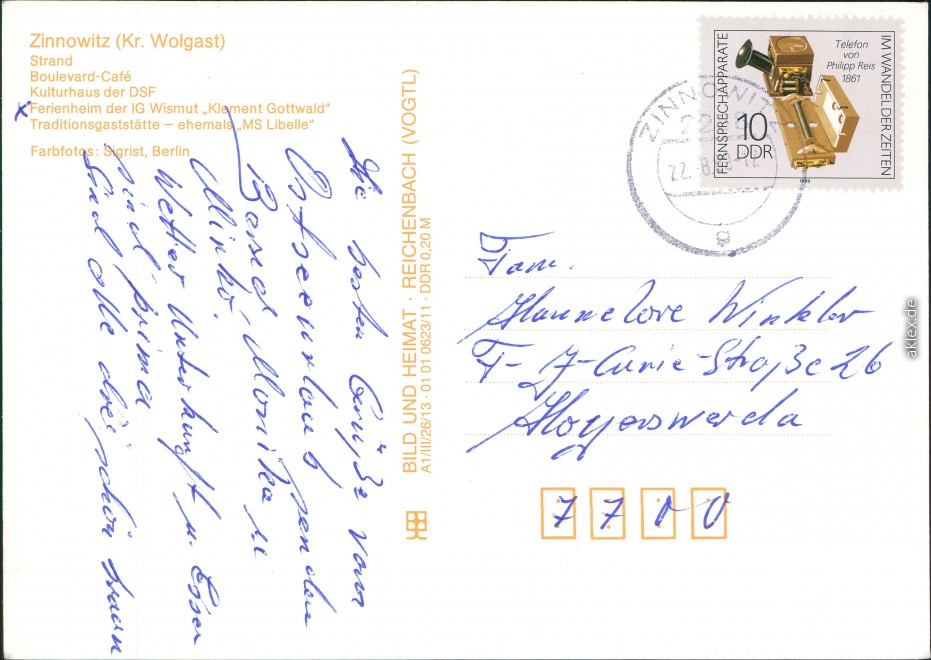 Zinnowitz (Kr. Wolgast)
Strand
Boulevard-Café
Kulturhaus der DSF
x Ferienheim der IG Wismut „Klement Gottwald“
Traditionsgaststätte – ehemals „MS Libelle“
Farbfotos: Sigrist, Berlin
Die besten Grüße vom
Ostseeurlaub senden
Bernd, Monika u.
Mirko.
Wetter Unterkunft u. Essen
sind prima
sind alle drei schön braun
BILD UND HEIMAT · REICHENBACH (VOGTL)
A1/III/26/13 · 01 01 0623/11 · DDR 0,20 M
FERNSPRECHAPPARATE
IM WANDEL DER ZEITEN
Telefon
von
Philipp Reis
1861
10
DDR
1989
ZINNOWITZ
2238
22.-8.
-12
g
Fam.
Hannelore Winkler
F-J-Curie-Straße 26
Hoyerswerda
7 7 0 0
aklex.de